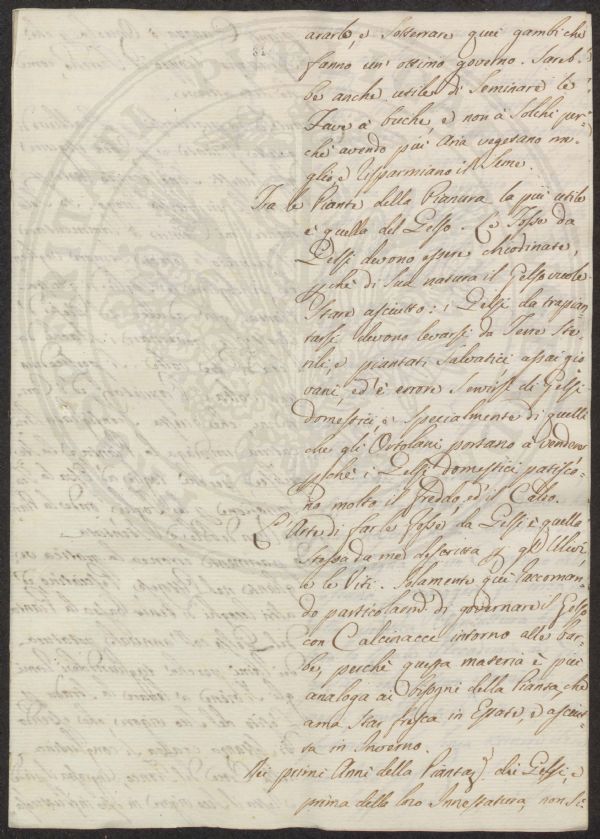 ararle, e Sotterrare quei gambi che
fanno un' ottimo governo. Sareb-
be anche utile di Seminare le
Fave à buche, e non à Solchi per-
chè avendo più Aria vegetano me-
glio, e risparmiano il Seme.
Tra le Piante della Pianura la più utile
è quella del Gelso. Le Fosse da
Gelsi devono essere chiodinate,
pchè di Sua natura il Gelso vuole
Stare asciutto: i Gelsi da trapian-
tarsi devono levarsi da Terre Ste-
rili, e piantati Salvatici assai gio-
vani, ed' è errore Servirsi di Gelsi
domestici, e Specialmente di quelli
che gli Ortolani portano à vendere
pchè i Gelsi domestici patisco-
no molto il freddo, ed' il Caldo.
L' Arte di far le fosse da Gelsi è quella
Stessa da me descritta p gl' Ulivi,
e le Viti. Solamente qui raccoman-
do di governare il Gelso
con Calcinacce intorno alle bar-
be, perchè questa materia è più
analoga ai bisogni della Pianta, che
ama Star fresca in Estate, e asciut-
ta in Inverno.
Nei primi Anni della Pianta dei Gelsi, e
prima della loro Innestatura, non Si